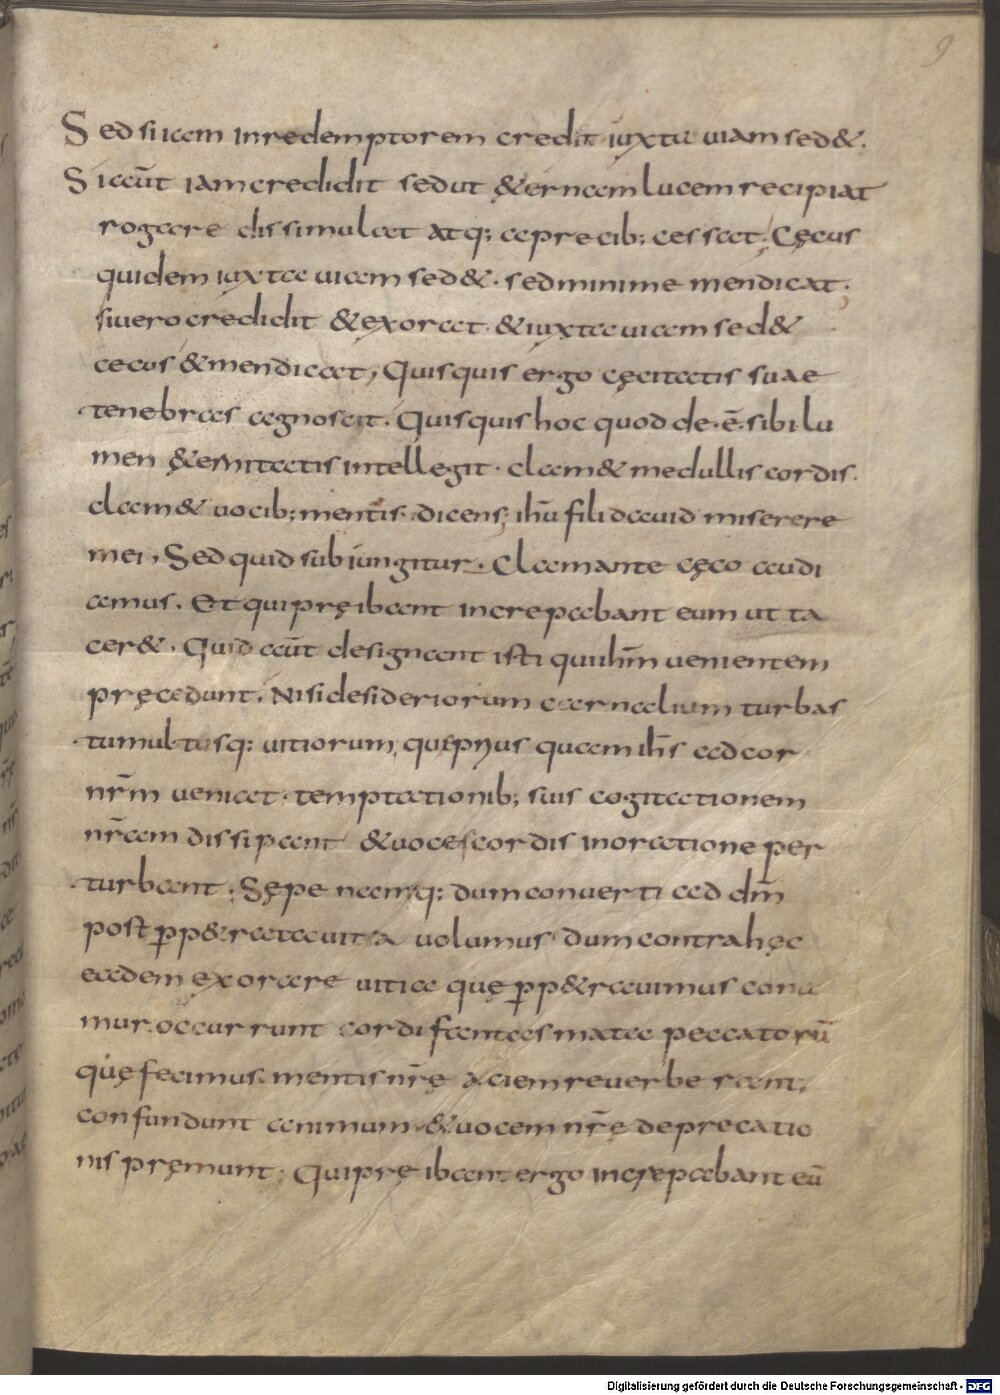 9
Sed si iam in redemptorem credit iuxta uiam sed&.
Si aut̄ iam credidit sed ut &ernam lucem recipiat
rogare dissimulat atq; a precib; cessat. Cęcus
quidem iuxta uiam sed&. sed minime mendicat.
si uero credidit & exorat. & iuxta uiam sed&
cecus & mendicat, Quisquis ergo cęcitatis suae
tenebras agnoscit. Quisquis hoc quod de.ē. sibi lu
men &ernitatis intellegit. clam& medullis cordis.
clam& uocib; mentis. dicens; ih̄u fili dauid miserere
mei, Sed quid subiungitur. Clamante cęco audi
amus. Et qui pręibant increpabant eum ut ta
cer&. Quid aut̄ designant isti qui ih̄m uenientem
pręcedunt. Nisi desideriorum carnalium turbas
tumultusq; uitiorum, qui p̱rius quam ih̄s ad cor
nr̄m ueniat. temptationib; suis cogitationem
nr̄am dissipant & uoces cordis in oratione per
turbant. Sępe namq; dum conuerti ad dm̄
post p̱p&rata uitia uolumus dum contra hęc
eadem exorare uitia quę p̱p&rauimus cona
mur. occurrunt cordi fantasmata peccatorū
quę fecimus. mentis nr̄ę aciem reuerberant;
confundunt animum & uocem nr̄ę deprecatio
nis pręmunt. Qui pręibant ergo increpabant eū
Digitalisierung gefördert durch die Deutsche Forschungsgemeinschaft - DFG